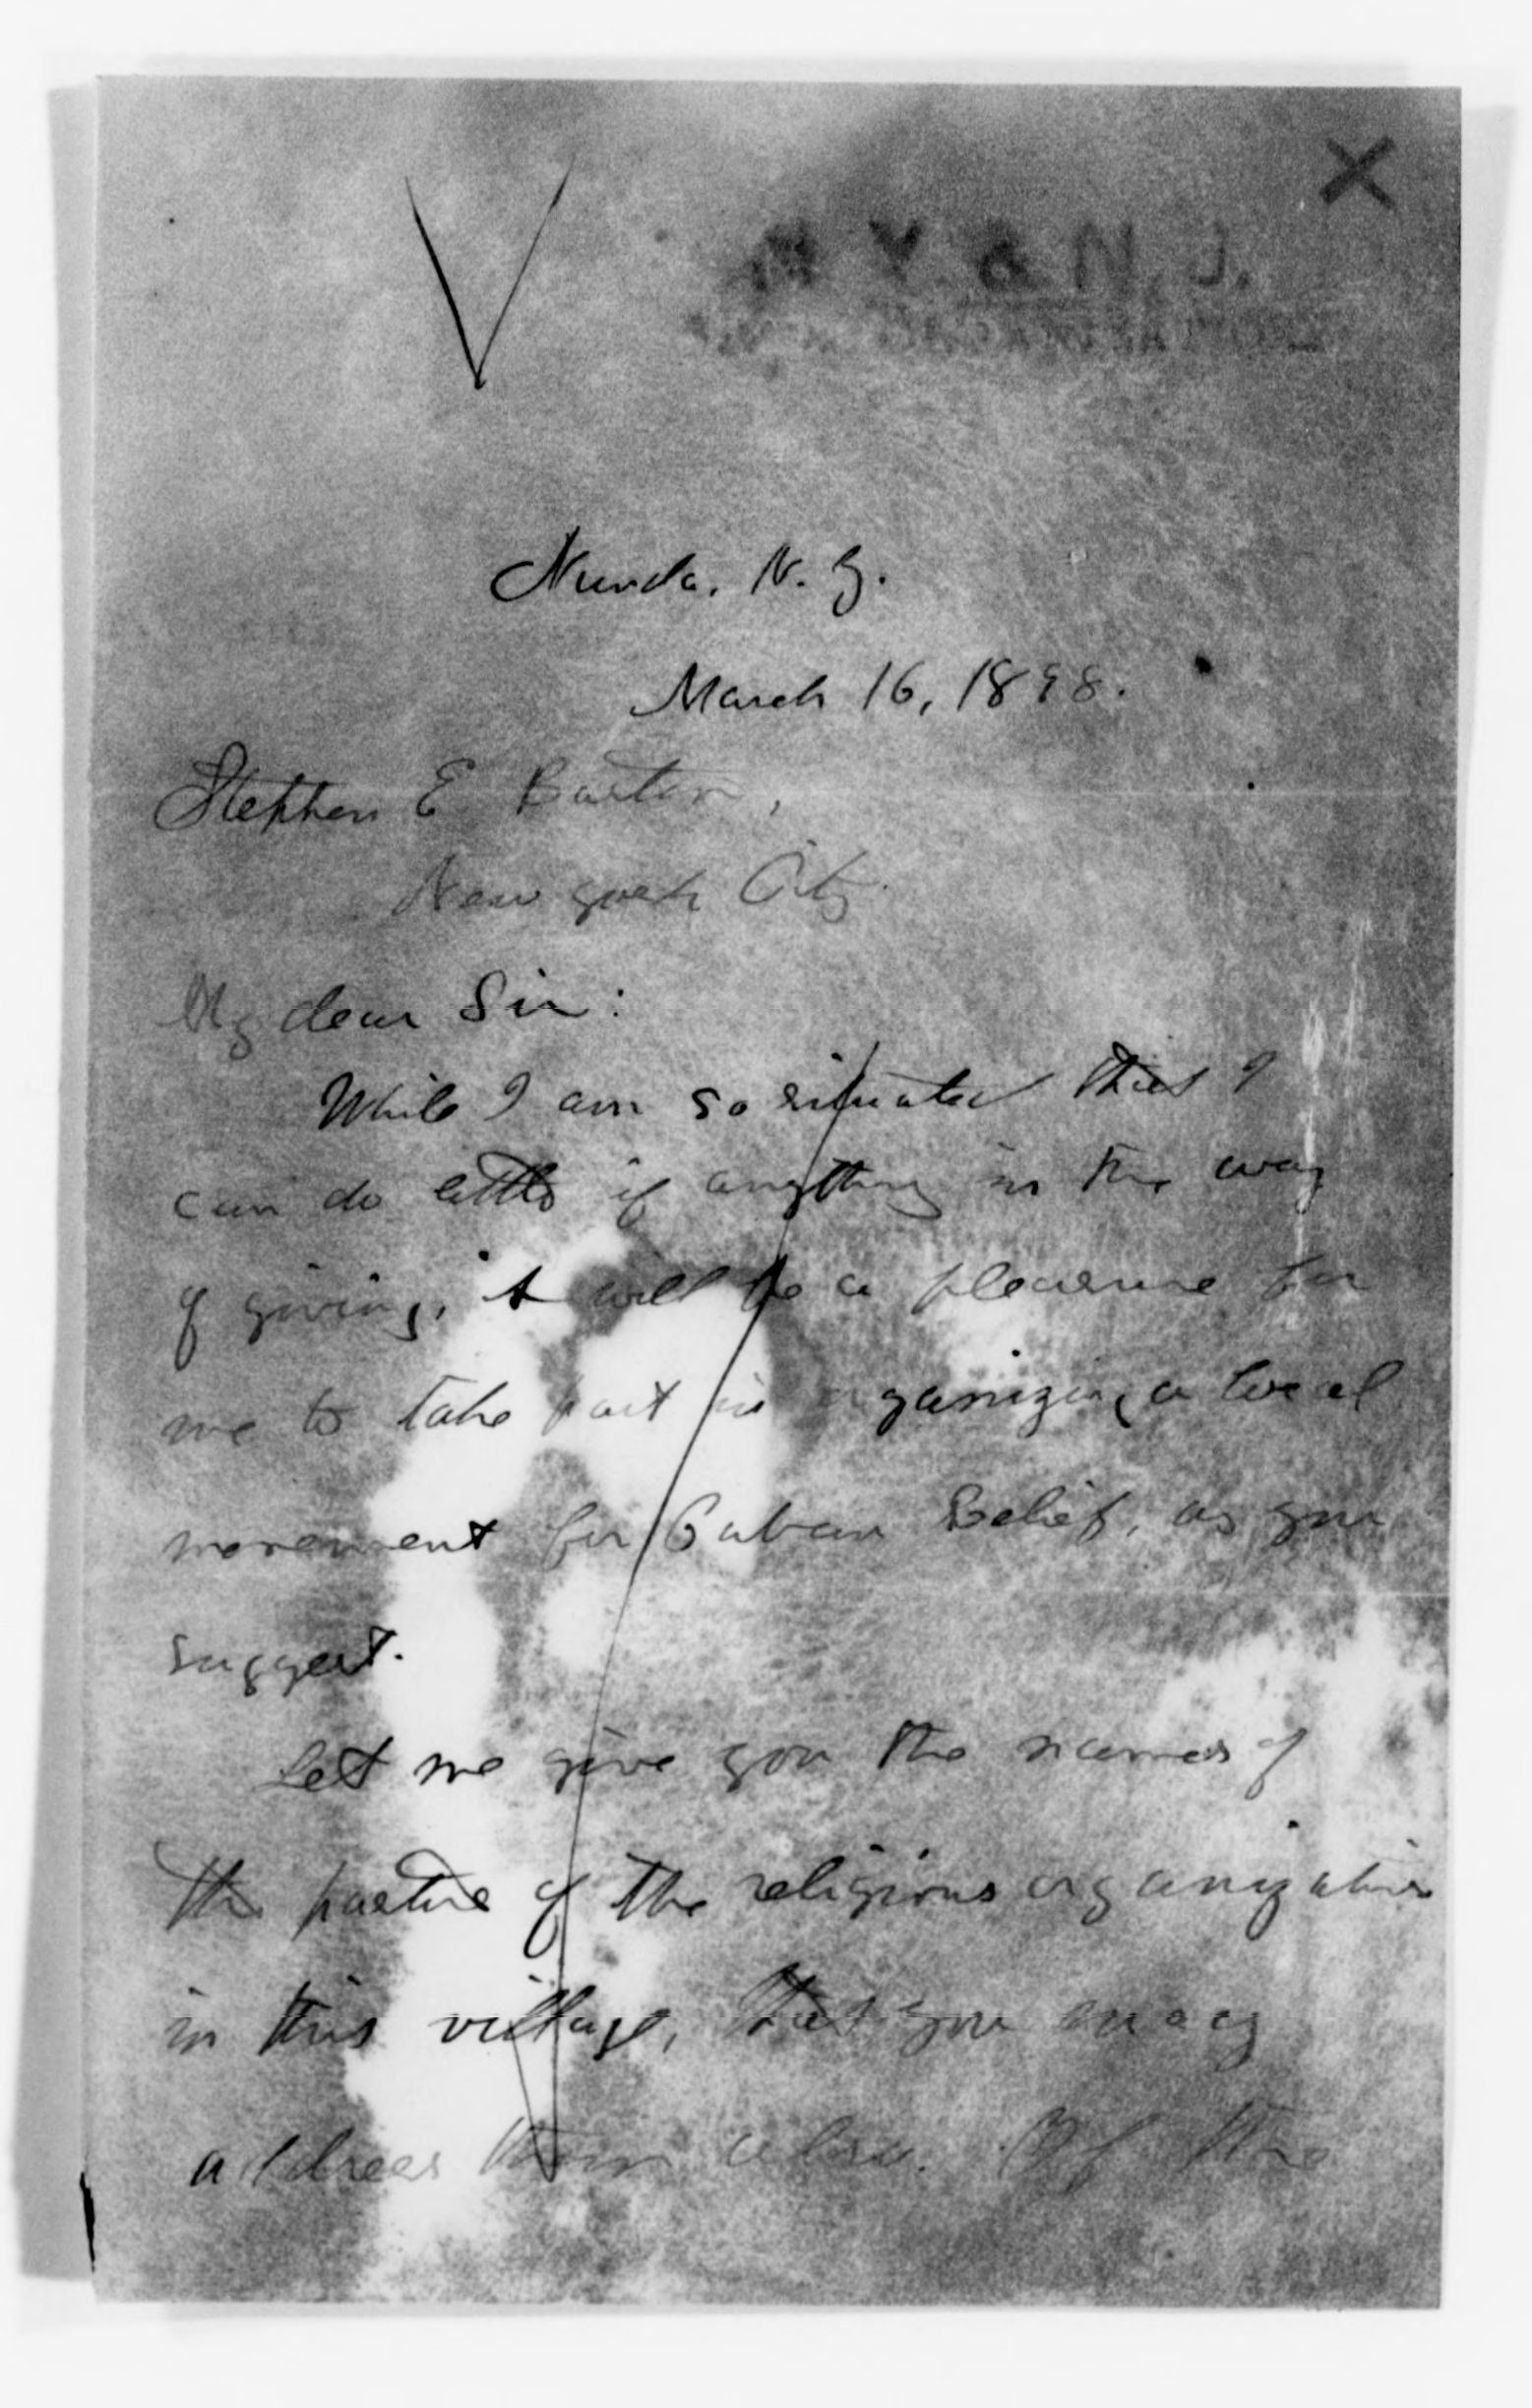 Nunda, N. Y.
March 16, 1898.
Stephen E Barton,
New York City.
My dear Sir:
While I am so situated that I
can do little if anything in the way
of giving, it will be a pleasure for
me to take part in organizing a local
movement for Cuban Relief, as you
suggest.
Let me give you the names of
the pastors of the religious organizations
in this village, that you may
address them also. Of the